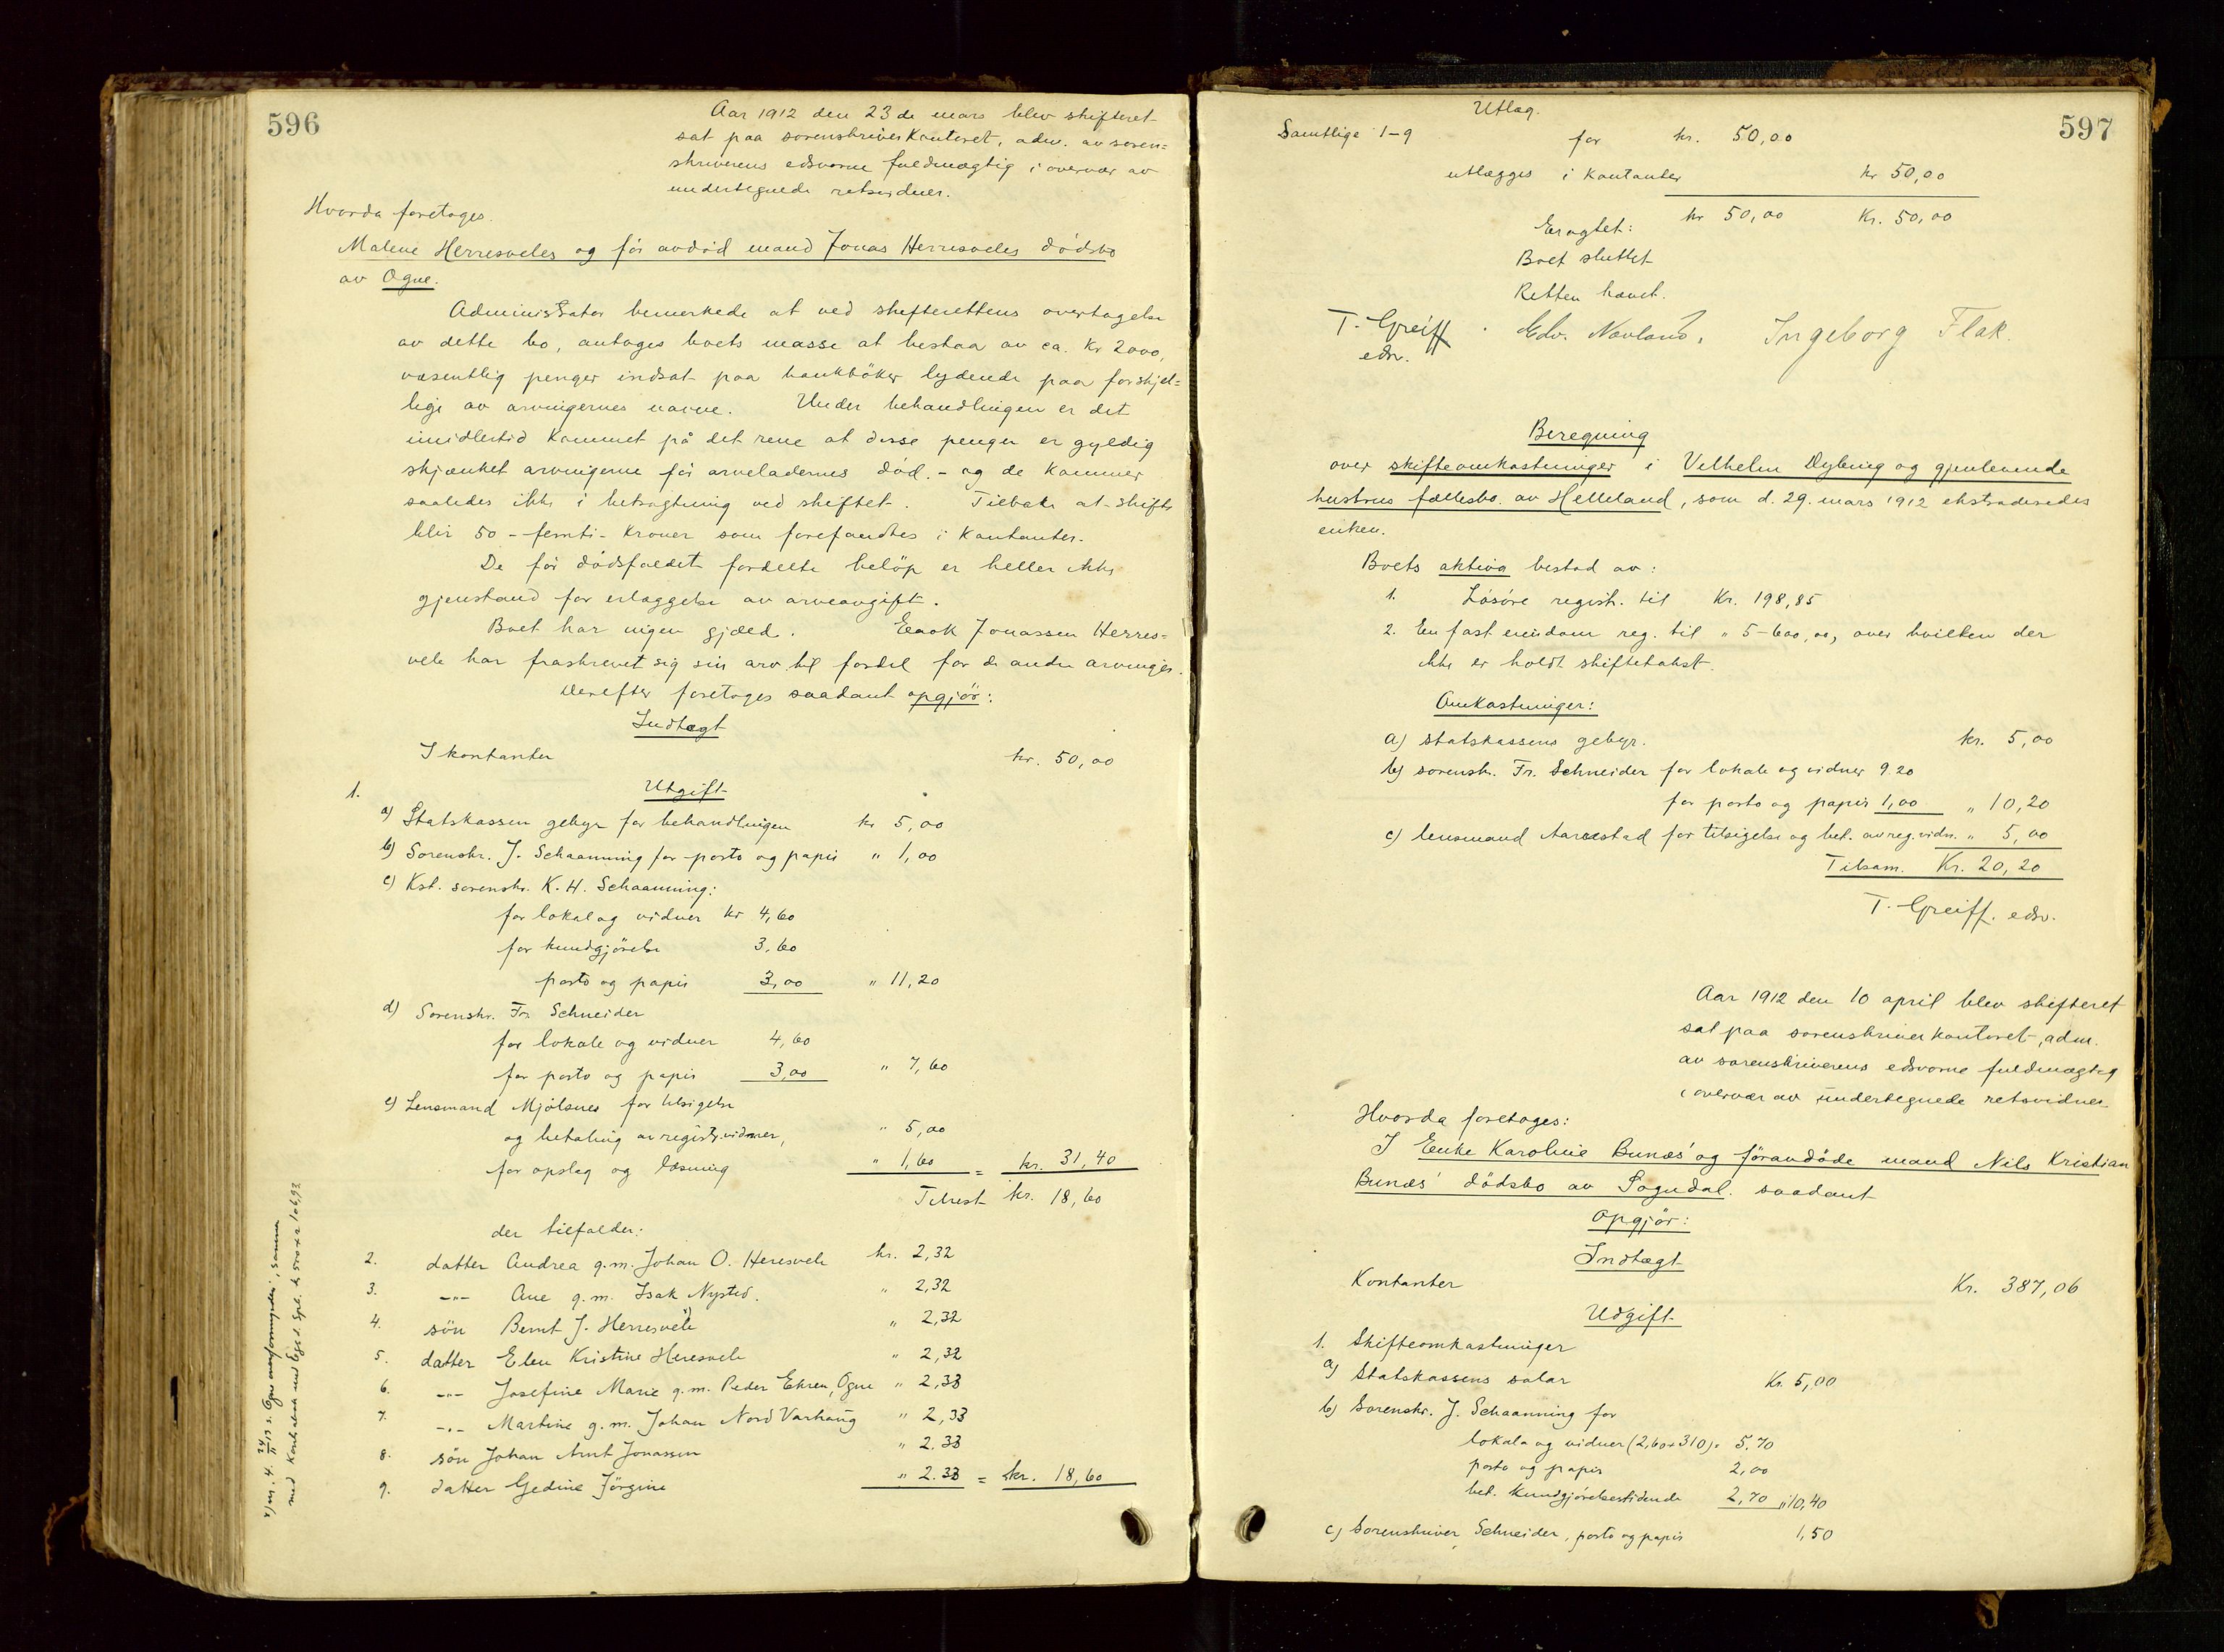 596
Aar 1912 den 23de mars blev skifteret
sat paa sorenskriverkontoret, adm. av soren=
skriverens edsvorne fuldmægtig i overvær av
undertegnede retsvidner.
Hvorda foretoges.
Malene Herresveles og før avdød mand Jonas Herresveles dødsbo
av Ogne.
Administrator bemerkede at ved skifterettens overtagelse
av dette bo, antoges boets masse at bestaa av ca. Kr 2000,
væsentlig penger indsat paa bankbøker lydende paa forskjel=
lige av arvingernes navne. Under behandlingen er det
imidlertid kommet på det rene at disse penger er gyldig
skjænket arvingerne før arveladernes død. - og de kommer
saaledes ikke i betragtning ved skiftet. Tilbake at skifte
blir 50 - femti - kroner som forefandtes i kontanter.
De før dødsfaldet fordelte beløp er heller ikke
gjenstand for erlæggelse av arveavgift.
Boet har ingen gjæld. Enok Jonassen Herres=
vele har fraskrevet sig sin arv til fordel for de andre arvinger.
Derefter foretoges saadant opgjør:
Indtægt
I kontanter kr. 50,00
1. Utgift
a) Statskassen gebyr for behandlingen kr 5,00
b) Sorenskr. J. Schaanning for porto og papir " 1,00
c) Kst. sorenskr. K. H. Schaanning:
for lokal og vidner kr 4,60
for kundgjørelse 3,60
porto og papir 3,00 " 11,20
d) Sorenskr. Fr. Schneider
for lokale og vidner 4,60
for porto og papir 3,00 " 7,60
e) Lensmand Mjølsnes for tilsigelse
og betaling av registr.vidner, " 5,00
for opslag og læsning " 1,60 = kr. 31,40
Tilrest kr. 18,60
der tilfalder:
2. datter Andrea g.m. Johan O. Heresvele kr. 2,32
3. -"- Ane g.m. Isak Nysted. " 2,32
4. søn Bernt J. Herresvele x) " 2,32
5. datter Elen Kristine Heresvele " 2,32
6. -"- Josefine Marie g.m. Peder Ehren, Ogne " 2,33
7. -"- Martine g.m. Johan Nord Varhaug " 2,33
8. søn Johan Arnt Jonassen " 2.33
9. datter Gedine Jörgine " 2.33 = kr. 18,60
597
Utlæg.
Samtlige 1-9 for kr. 50,00
utlægges i kontanter kr 50,00
kr 50,00 Kr. 50,00
Eragtet:
Boet sluttet
Retten hævet.
T. Greiff Edv. Navland, Ingeborg Flak.
edsv.
Beregning
over skifteomkostninger i Vilhelm Dybing og gjenlevende
hustrus fællesbo av Helleland, som d. 29. mars 1912 ekstraderedes
enken.
Boets aktiva bestod av:
1. Løsøre registr. til Kr. 198,85
2. En fast eiendom reg. til " 5-600,00, over hvilken der
ikke er holdt skiftetakst.
Omkostninger:
a) statskassens gebyr. kr. 5,00
b) sorenskr. Fr. Schneider for lokale og vidner 9.20
for porto og papir 1,00 " 10,20
c) lensmand Aarstad for tilsigelse og bet. av reg.vidn. " 5,00
Tilsam. Kr. 20,20
T. Greiff. edsv.
Aar 1912 den 10 april blev skifteret
sat paa sorenskriverkontoret, adm.
av sorenskriverens edsvorne fuldmægtig
i overvær av undertegnede retsvidner
Hvorda foretoges:
I Enke Karoline Bunæs' og førавdøde mand Nils Kristian
Bunæs' dödsbo av Sogndal. saadant
Opgjør:
Indtægt
Kontanter Kr. 387,06
Udgift
1. Skifteomkostninger
a) Statskassens salar Kr. 5,00
b) Sorenskr. J. Schaanning for
lokale og vidner (2,60+3 10) = 5.70
porto og papir 2,00
bet. kundgjørelsestidende 2,70 " 10,40
c) Sorenskriver Schneider, porto og papir 1,50